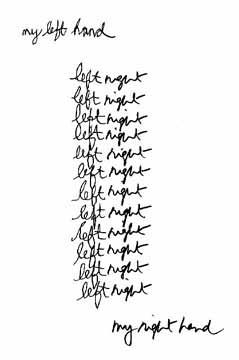 my left hand
left right
left right
left right
left right
left right
left right
left right
left right
left right
left right
left right
left right
my right hand